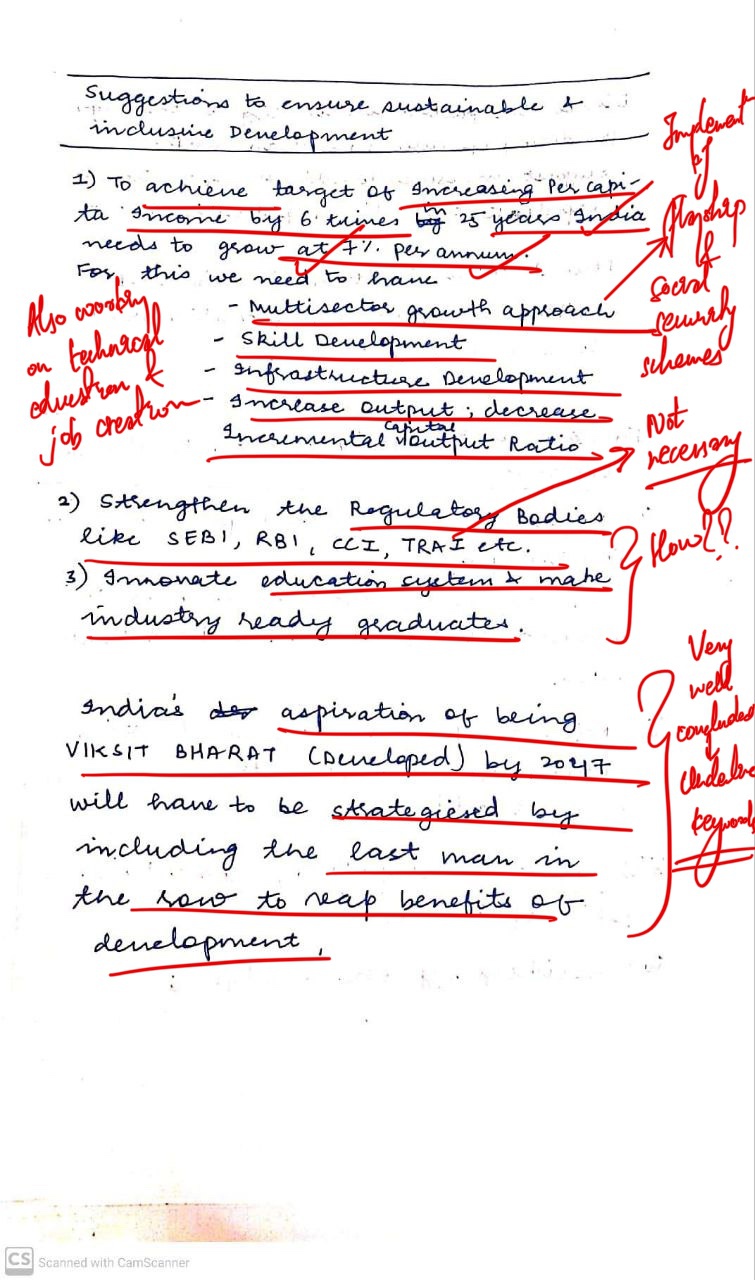 Suggestions to ensure sustainable &
inclusive Development
1) To achieve target of Increasing Per capi-
ta Income by 6 times in 25 years India
needs to grow at 7% per annum.
For this we need to have
- Multisector growth approach
- Skill Development
- Infrastructure Development
- Increase output ; decrease
Incremental Capital Output Ratio
2) Strengthen the Regulatory Bodies
like SEBI, RBI, CCI, TRAI etc.
3) Innovate education system & make
industry ready graduates.
India's aspiration of being
VIKSIT BHARAT (Developed) by 2047
will have to be strategiesed by
including the last man in
the row to reap benefits of
development.
Implement
of
flagship
&
social
security
schemes
Also working
on technical
education &
job creation
Not
necessary
How??
Very
well
concluded
Underline
keywords
CS Scanned with CamScanner